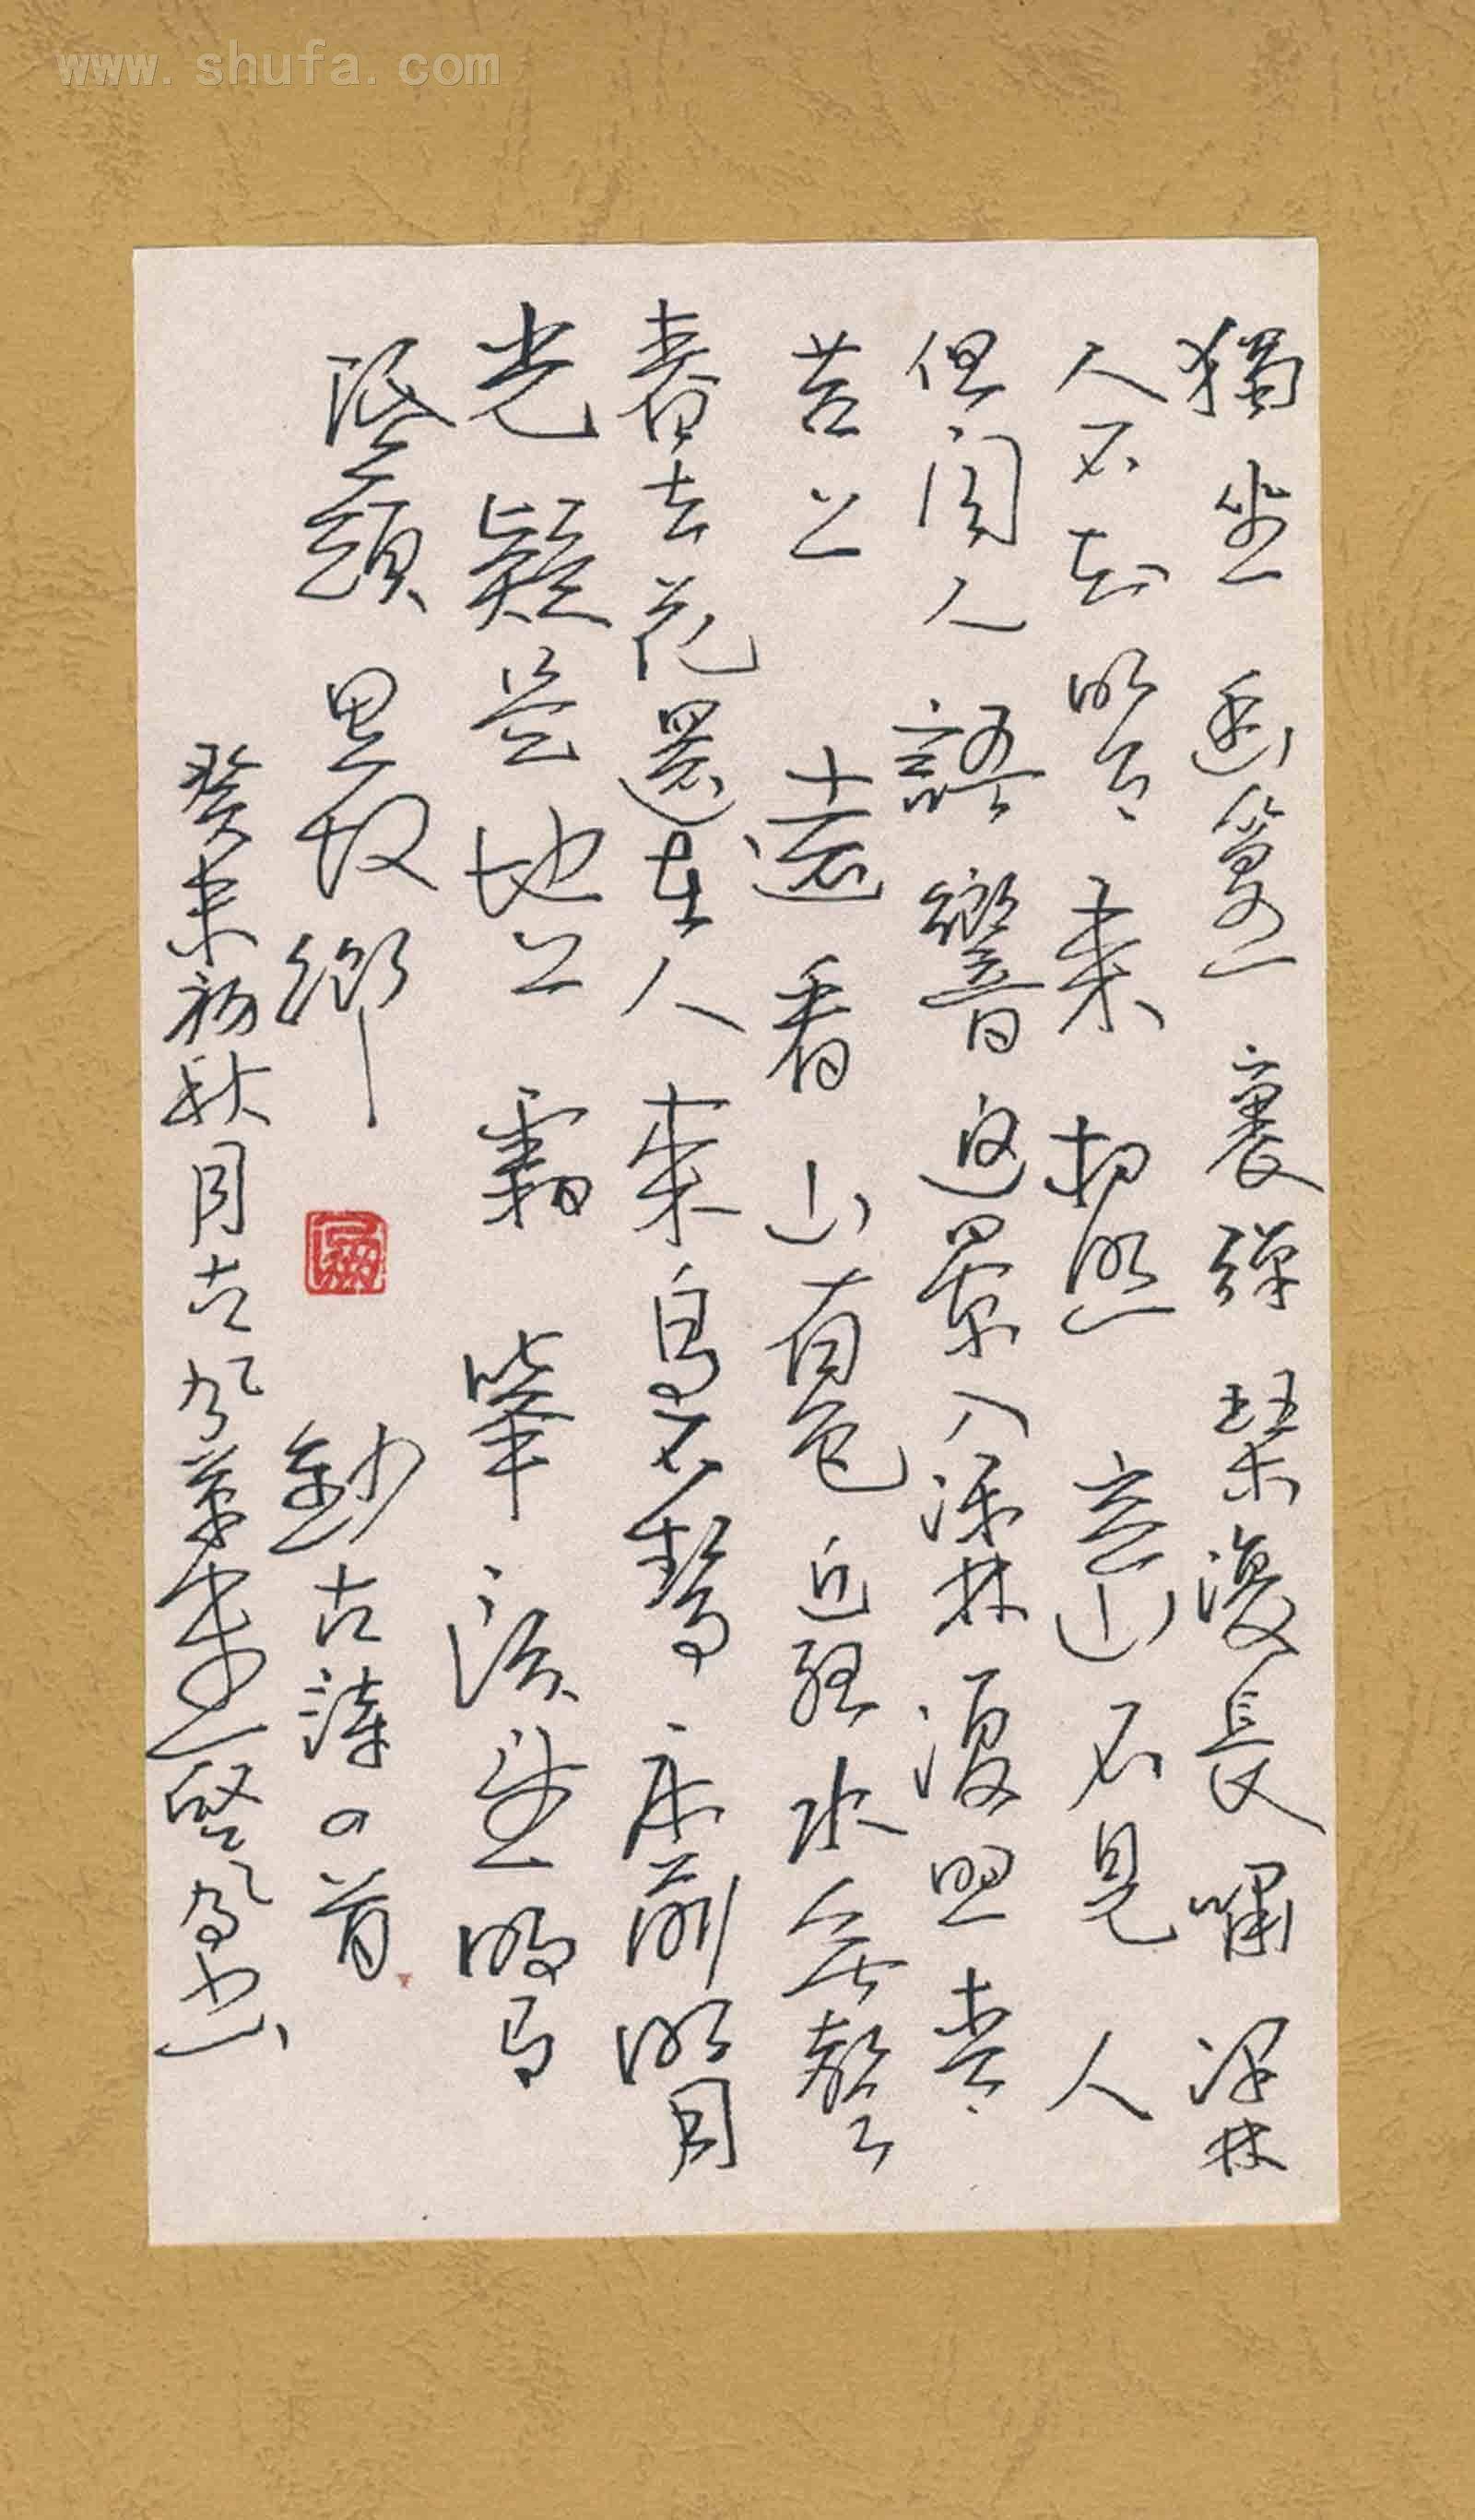 www.shufa.com
獨坐幽篁裏彈琴復長嘯深林
人不知明月來相照空山不見人
但聞人語響返景入深林復照青
苔上遠看山有色近聽水無聲
春去花還在人來鳥不驚床前明月
光疑是地上霜舉頭望明月
低頭思故鄉鈔古詩四首
癸未初秋月古